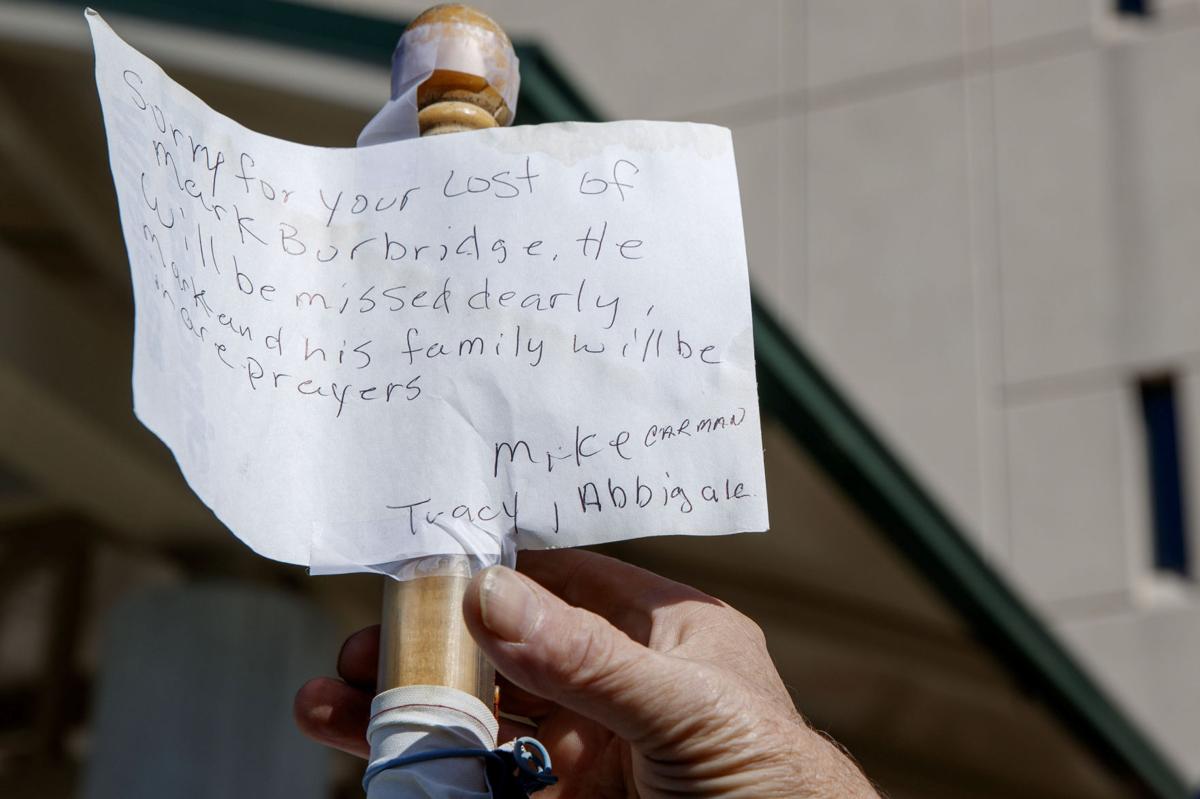 Sorry for your Lost of
Mark Burbridge. He
Will be missed dearly,
Mark and his family will be
in are prayers
Mike CARMAN
Tracy, Abbigale.